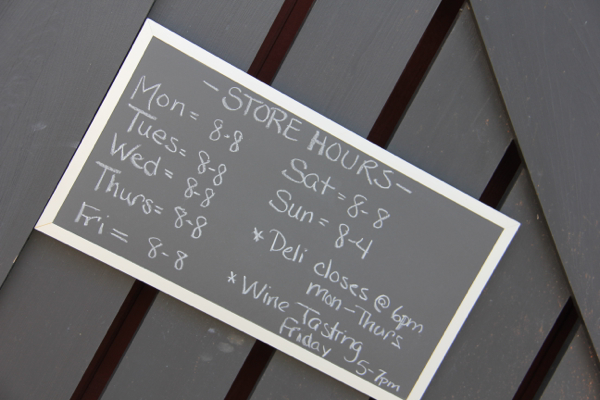 - STORE HOURS -
Mon = 8-8
Tues = 8-8
Wed = 8-8
Thurs = 8-8
Fri = 8-8
Sat = 8-8
Sun = 8-4
* Deli closes @ 6pm
mon-Thurs
* Wine Tasting
Friday 5-7pm